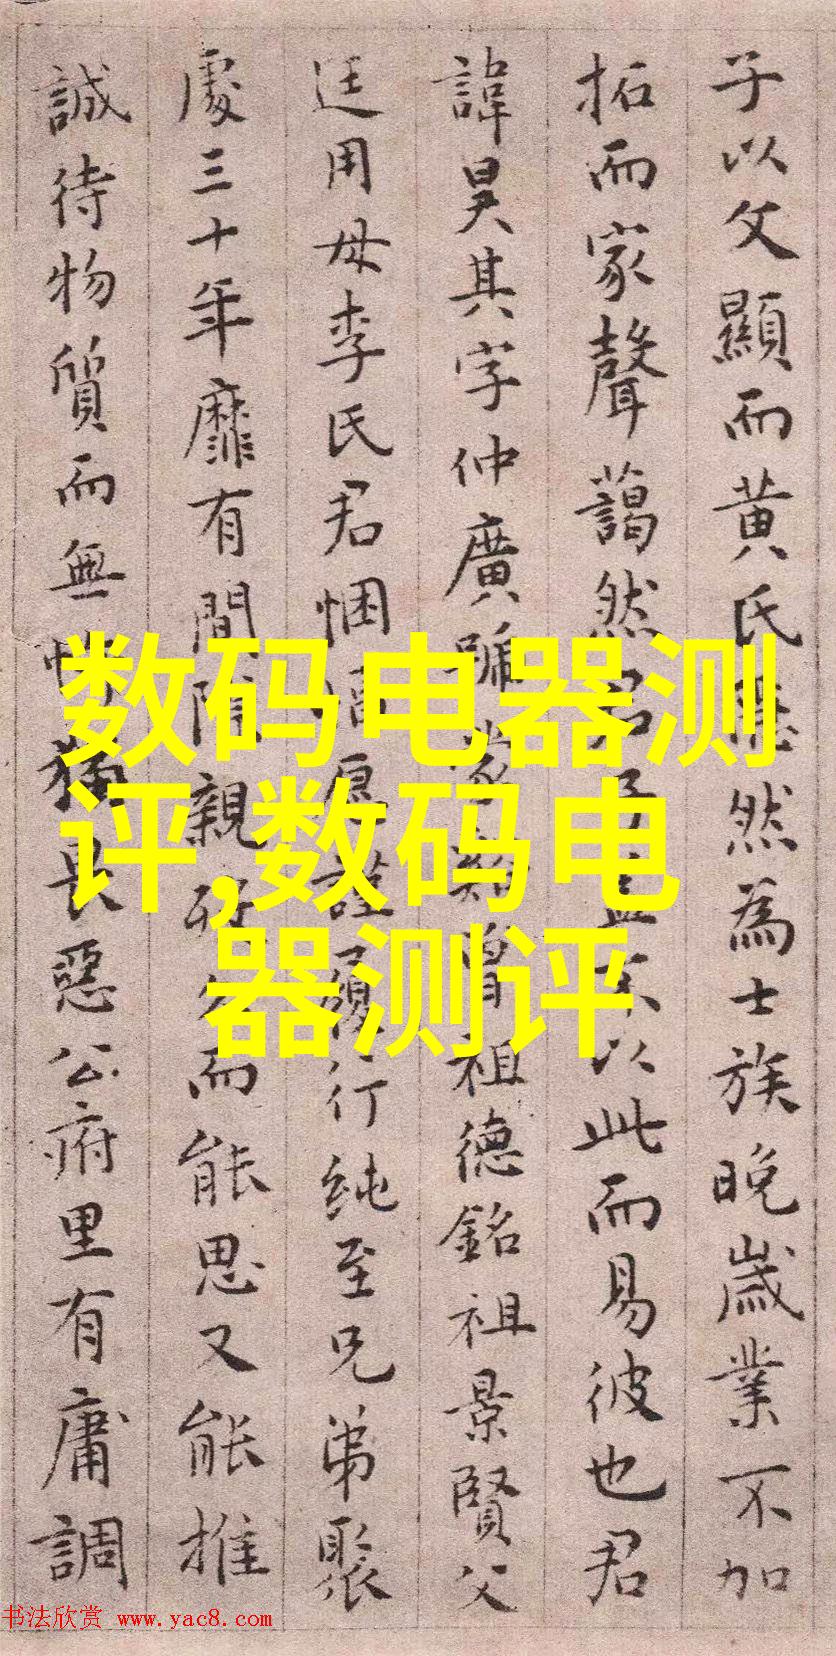 子以父顯而黄氏然為士族晚歲業不加
拓而家聲藹然君以此而易彼也君
諱昊其字仲廣號曾祖德銘祖景賢父
廷用母李氏君悃愿謹履行純至兄弟聚
處三十年靡有間隙親而能思又能推
誠待物質而無畏惡公府里有庸調
数码电器测
评,数码电
器测评
书法欣赏 www.yac8.com